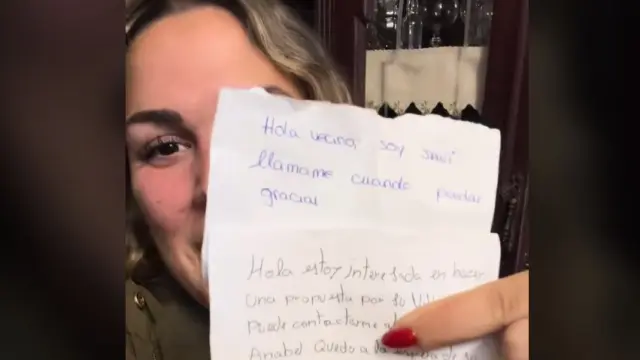 Hola vecina, soy Javi
llamame cuando puedas
gracias
Hola estoy interesada en hacer
una propuesta por su
Puede contactarme
Anabel Quedo a la espera de su